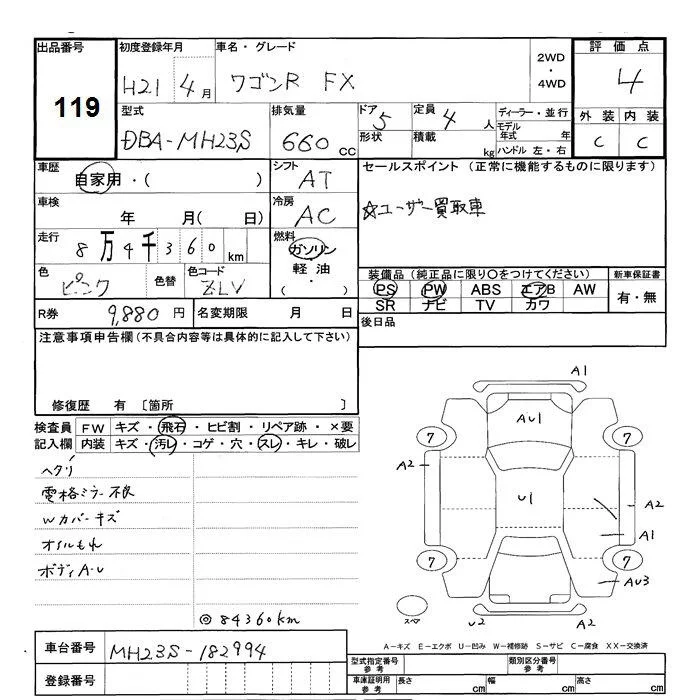 出品番号 初度登録年月 車名・グレード 評価点
119 H21 4月 ワゴンR FX 2WD・4WD 4
型式 排気量 ドア 定員 ディーラー・並行 外装 内装
DBA-MH23S 660 CC 5 4人 モデル年式 年 C C
形状 積載 kg ハンドル 左・右
車歴 自家用・( ) シフト AT セールスポイント (正常に機能するものに限ります)
車検 年 月( 日) 冷房 AC ☆ユーザー買取車
走行 8万4千360km 燃料 ガソリン 軽油 ( ・ )
色 ピンク 色替 色コード ZLV
装備品 (純正品に限り○をつけてください) 新車保証書
PS PW ABS エアB AW 有・無
SR ナビ TV カワ
R券 9,880円 名変期限 月 日 後日品
注意事項申告欄(不具合内容等は具体的に記入して下さい)
修復歴 有 〔箇所 〕
検査員記入欄 FW キズ・飛石・ヒビ割・リペア跡・×要
内装 キズ・汚レ・コゲ・穴・スレ・キレ・破レ
ヘタリ
電格ミラー不良
Wカバーキズ
オイルもれ
ボディA・U
◎84360km
A1
AU1
7 7
A2
U1
A2
A1
7 7
AU3
スペア U2 A1
A-キズ E-エクボ U-凹み W-補修跡 S-サビ C-腐食 XX-交換済
車台番号 MH23S-182994
登録番号
型式指定番号 参考 類別区分番号 参考
車庫証明用 参考 長さ cm 幅 cm 高さ cm